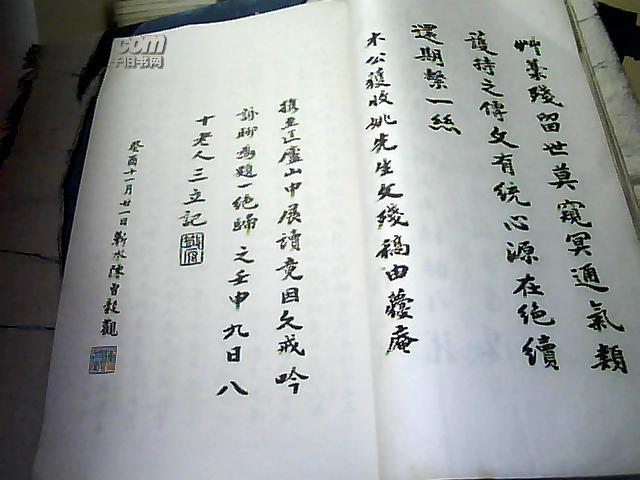 艸藁殘留世莫窺冥通氣類
護持之傳文有統心源在絕續
還期繫一絲
木公獲收姚先生文殘稿由蘉庵
攜至匡廬山中展讀竟因久戒吟
詠聊為題一絕歸之壬申九日八
十老人三立記
癸酉十一月廿一日蘄水陳曾觀
com
旧书网